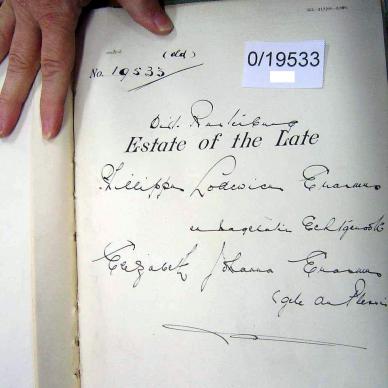 (old)
No. 19533
0/19533
Dist. Rustenburg
Estate of the Late
Phillippus Lodewicus Erasmus
en nagelaten Echtgenoote
Elizabeth Johanna Erasmus
(geb du Plessis